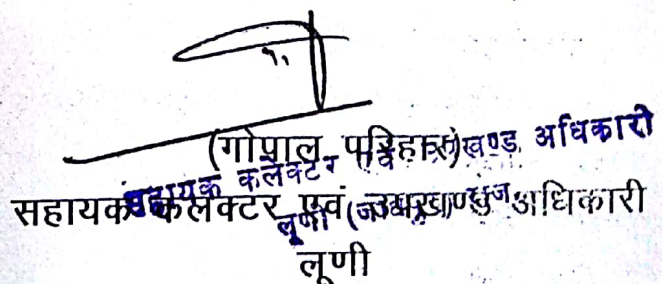 (गोपाल परिहार)
सहायक कलेक्टर एवं उपखण्ड अधिकारी
सहायक कलेक्टर एवं उपखण्ड अधिकारी
लूणी (जोधपुर) राज.
लूणी